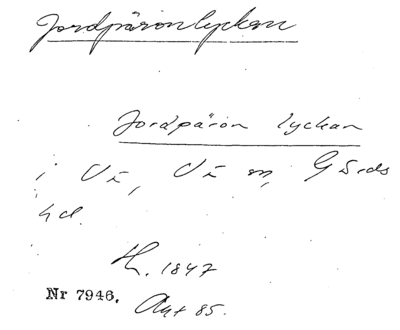 Jordpäronlyckan
Jordpäron lyckan
i Vä, Vä sn, Gärds
hd.
H. 1847
Nr 7946.
Akt 85.